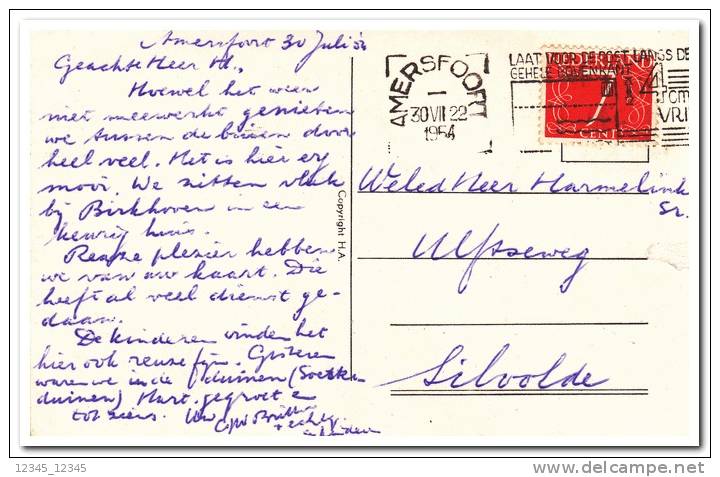 Amersfoort 30 Juli 54
Geachte Heer H.,
Hoewel het weer
niet meewerkt genieten
we tussen de buien door
heel veel. Het is hier erg
mooi. We zitten vlak
bij Birkhoven in een
keurig huis.
Reuze plezier hebben
we van uw kaart. Die
heeft al veel dienst ge-
daan.
De kinderen vinden het
hier ook reuze fijn. Gisteren
waren we in de duinen (Soester
duinen) Hart. gegroet en
tot ziens. Uw
Copyright H.A.
AMERSFOORT
30 VII 22
1954
LAAT VOOR DE POST LANGS DE
GEHELE BOVENKANT
4
CM
VRIJ
CENT
Weled Heer Harmelink
Sr.
Ulftseweg
Silvolde
12345_12345
www.delcampe.net